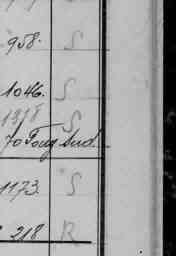 958. S
1046. S
1318 S
70 Toug Sud.
1173. S
218 R